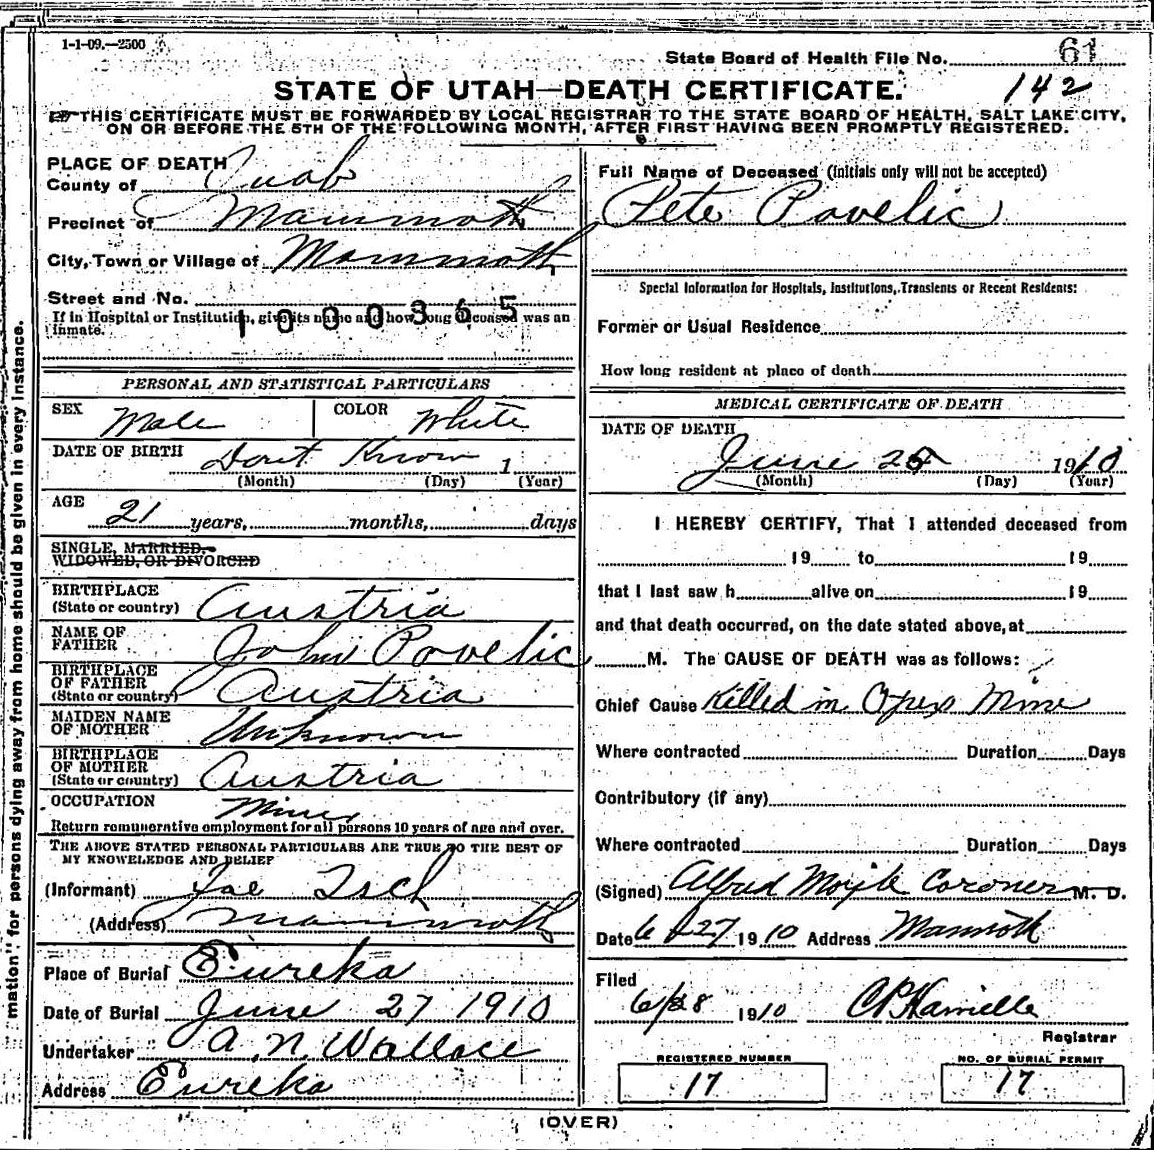 1-1-09.—2500
State Board of Health File No. 61
STATE OF UTAH—DEATH CERTIFICATE. 142
THIS CERTIFICATE MUST BE FORWARDED BY LOCAL REGISTRAR TO THE STATE BOARD OF HEALTH, SALT LAKE CITY,
ON OR BEFORE THE 5TH OF THE FOLLOWING MONTH, AFTER FIRST HAVING BEEN PROMPTLY REGISTERED.
mation" for persons dying away from home should be given in every instance.
PLACE OF DEATH
County of Juab
Precinct of Mammoth
City, Town or Village of Mammoth
Street and No.
1000365
If in Hospital or Institution, give its name and how long deceased was an
inmate.
PERSONAL AND STATISTICAL PARTICULARS
SEX Male COLOR White
DATE OF BIRTH Dont Know 1
(Month) (Day) (Year)
AGE
21 years, months, days
SINGLE, MARRIED,
WIDOWED, OR DIVORCED
BIRTHPLACE
(State or country) Austria
NAME OF
FATHER John Povelic
BIRTHPLACE
OF FATHER
(State or country) Austria
MAIDEN NAME
OF MOTHER Unknown
BIRTHPLACE
OF MOTHER
(State or country) Austria
OCCUPATION Miner
Return remunerative employment for all persons 10 years of age and over.
THE ABOVE STATED PERSONAL PARTICULARS ARE TRUE TO THE BEST OF
MY KNOWELEDGE AND BELIEF
(Informant) Joe
(Address) Mammoth
Place of Burial Eureka
Date of Burial June 27 1910
Undertaker A. N. Wallace
Address Eureka
Full Name of Deceased (Initials only will not be accepted)
Pete Povelic
Special Information for Hospitals, Institutions, Transients or Recent Residents:
Former or Usual Residence
How long resident at place of death
MEDICAL CERTIFICATE OF DEATH
DATE OF DEATH
June 1910
(Month) (Day) (Year)
I HEREBY CERTIFY, That I attended deceased from
19 to 19
that I last saw h alive on 19
and that death occurred, on the date stated above, at
M. The CAUSE OF DEATH was as follows:
Chief Cause Killed in Opex Mine
Where contracted Duration Days
Contributory (if any)
Where contracted Duration Days
(Signed) Alfred Coroner M. D.
Date 6/27 1910 Address Mammoth
Filed
6/28 1910
Registrar
REGISTERED NUMBER
17
NO. OF BURIAL PERMIT
17
(OVER)